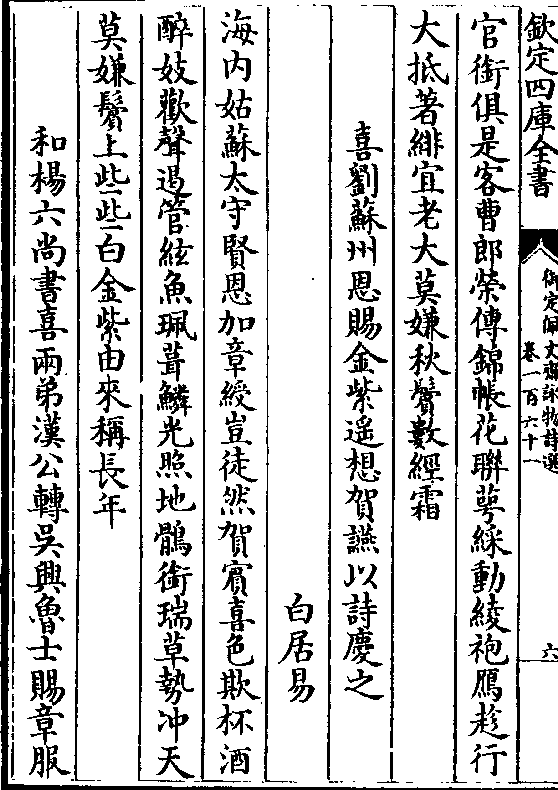 欽定四庫全書
御定佩文齋詠物詩選
卷一百六十一
六
官銜俱是客曹郎榮傳錦帳花聯萼綵動綾袍鴈趁行
大抵著緋宜老大莫嫌秋鬢數經霜
喜劉蘇州恩賜金紫遙想賀讌以詩慶之
白居易
海内姑蘇太守賢恩加章綬豈徒然賀賓喜色欺杯酒
醉妓歡聲遏管絃魚珮葺鱗光照地鶻銜瑞草勢冲天
莫嫌鬢上些些白金紫由來稱長年
和楊六尚書喜兩弟漢公轉吳興魯士賜章服